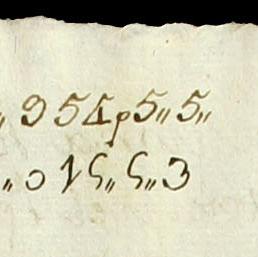 „ 9 5 4 p 5 „ 5 „
„ 0 1 5 „ 5 „ 3